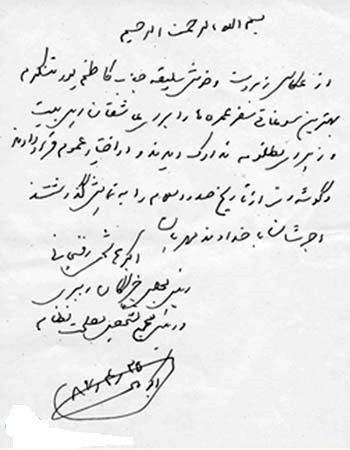 بسم الله الرحمن الرحیم
از عکاس زبردست و خوش سلیقه جناب کاظم پور متشکرم
بهترین سوغاتی سفر عمره را برای عاشقان اهل بیت
و زهرای مظلومه تدارک دیدند و در اختیار عموم قرار دادند
و گوشه‌ای از تاریخ صدر اسلام را به نمایش گذاشتند
اجرشان با خداوند مهربان
اکبر هاشمی رفسنجانی
رئیس مجلس خبرگان رهبری
و رئیس مجمع تشخیص مصلحت نظام